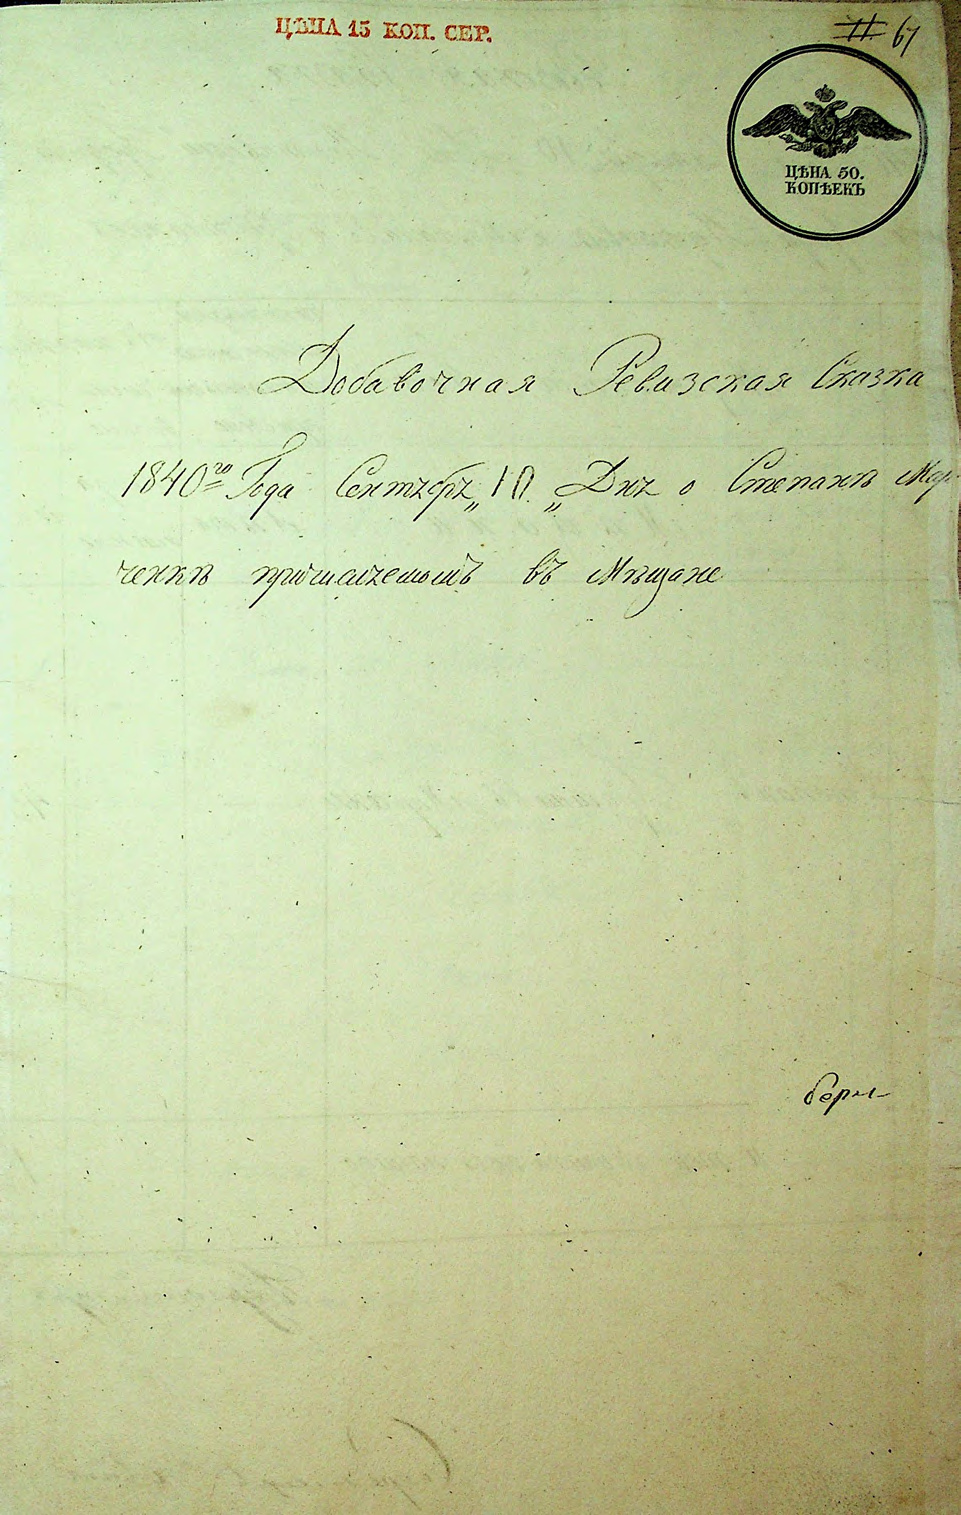 ЦѢНА 15 КОП. СЕР.
11 67
ЦѢНА 50.
КОПѢЕКЪ
Добавочная Ревизская Сказка
1840го Года Сентебрѣ „10„ Дня о Степанѣ Мар-
ченкѣ причисляемомъ въ Мѣщане